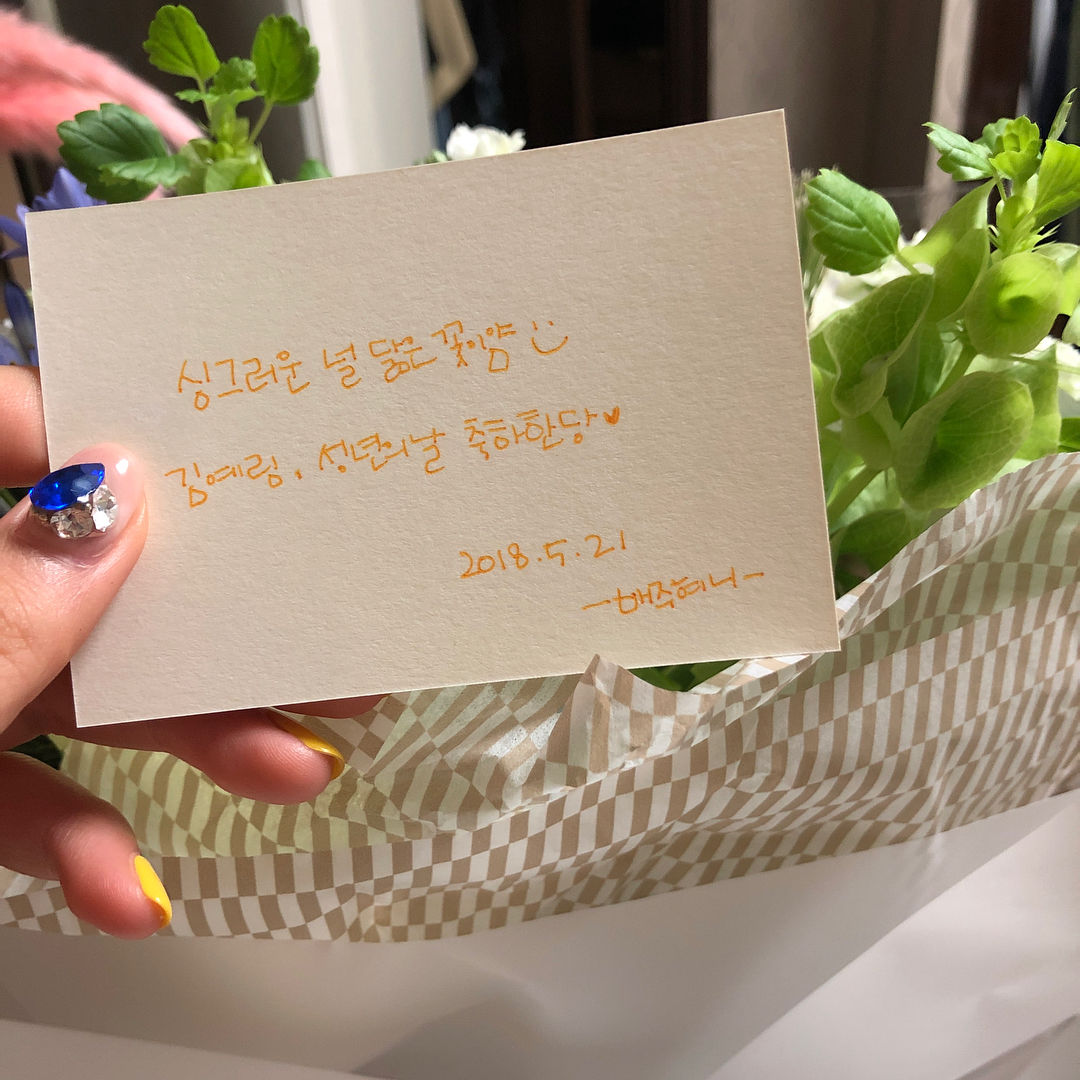 싱그러운 널 닮은 꽃이양 :)
김예림, 성년의날 축하한당♥
2018.5.21
-배주혀니-